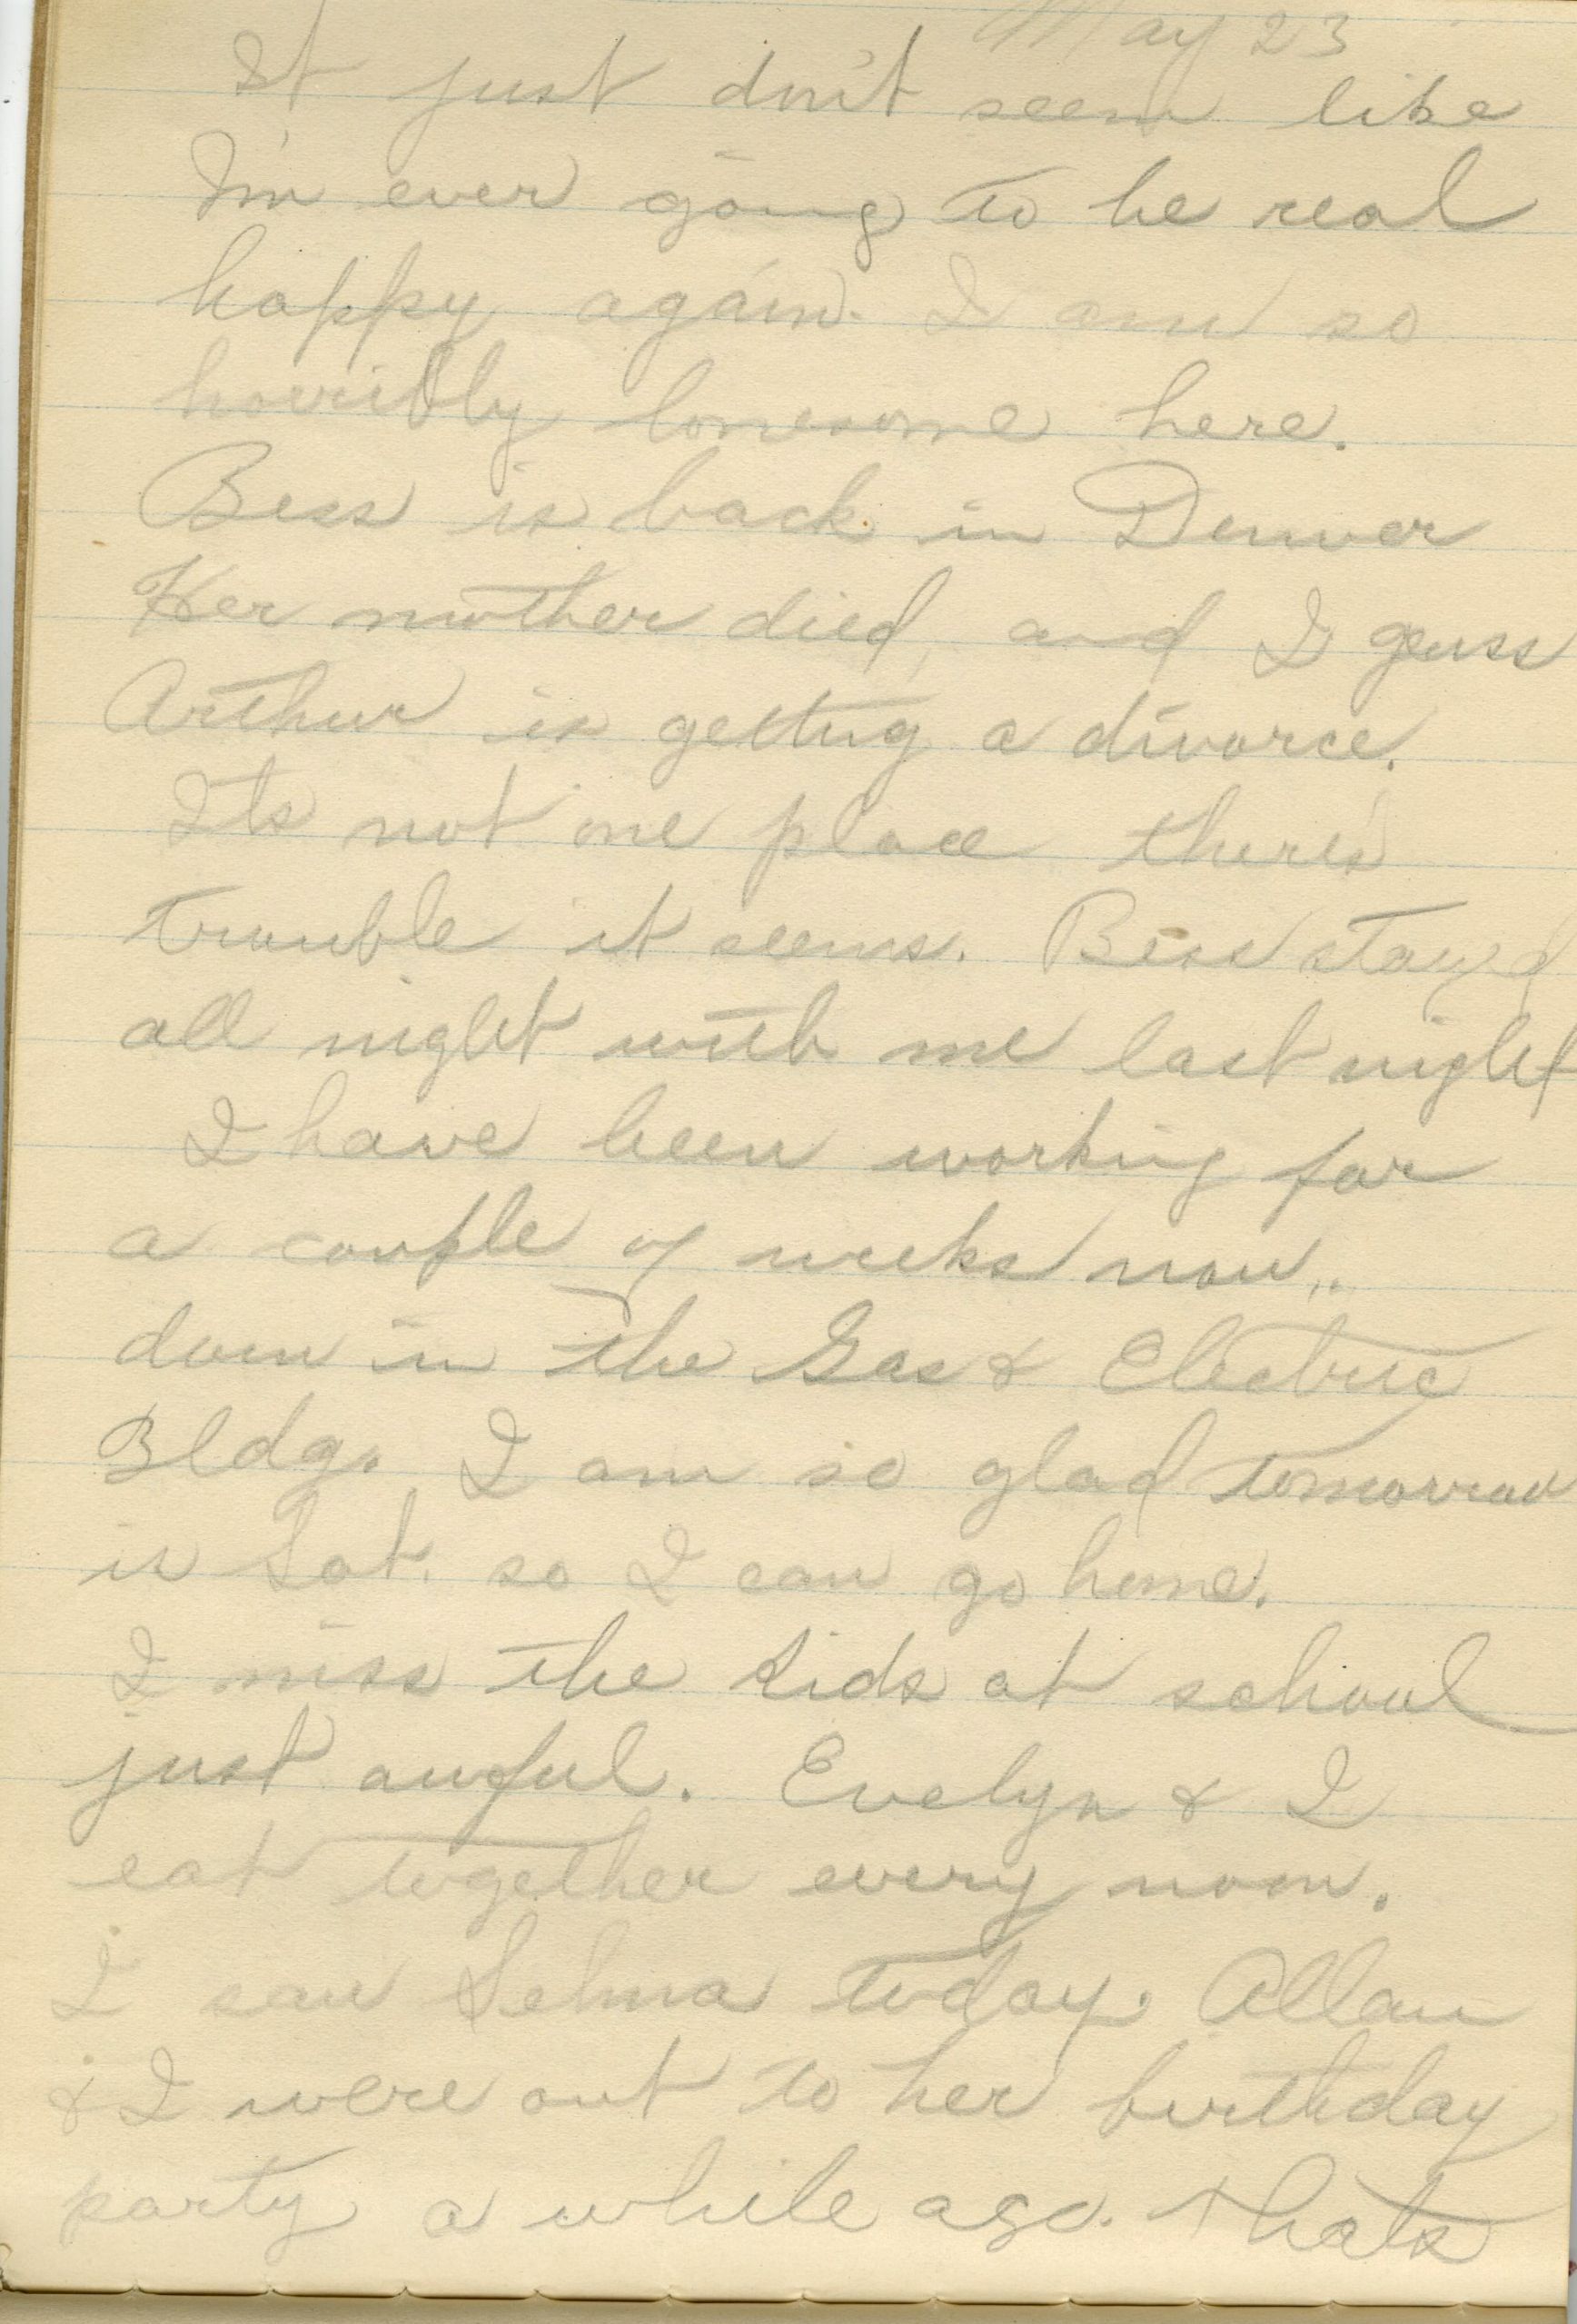 May 23
It just don't seem like
I'm ever going to be real
happy again. I am so
horribly lonesome here.
Bess is back in Denver
Her mother died, and I geuss
Arthur is gettng a divorce.
Its not one place there's
trouble it seems. Bess stayed
all night with me last night
I have been working for
a couple of weeks now..
down in the Gas & Electric
Bldg. I am so glad tomorrow
is Sat. so I can go home.
I miss the kids at school
just awful. Evelyn & I
eat together every noon.
I saw Selma today. Allan
& I were out to her birthday
party a while ago. thats